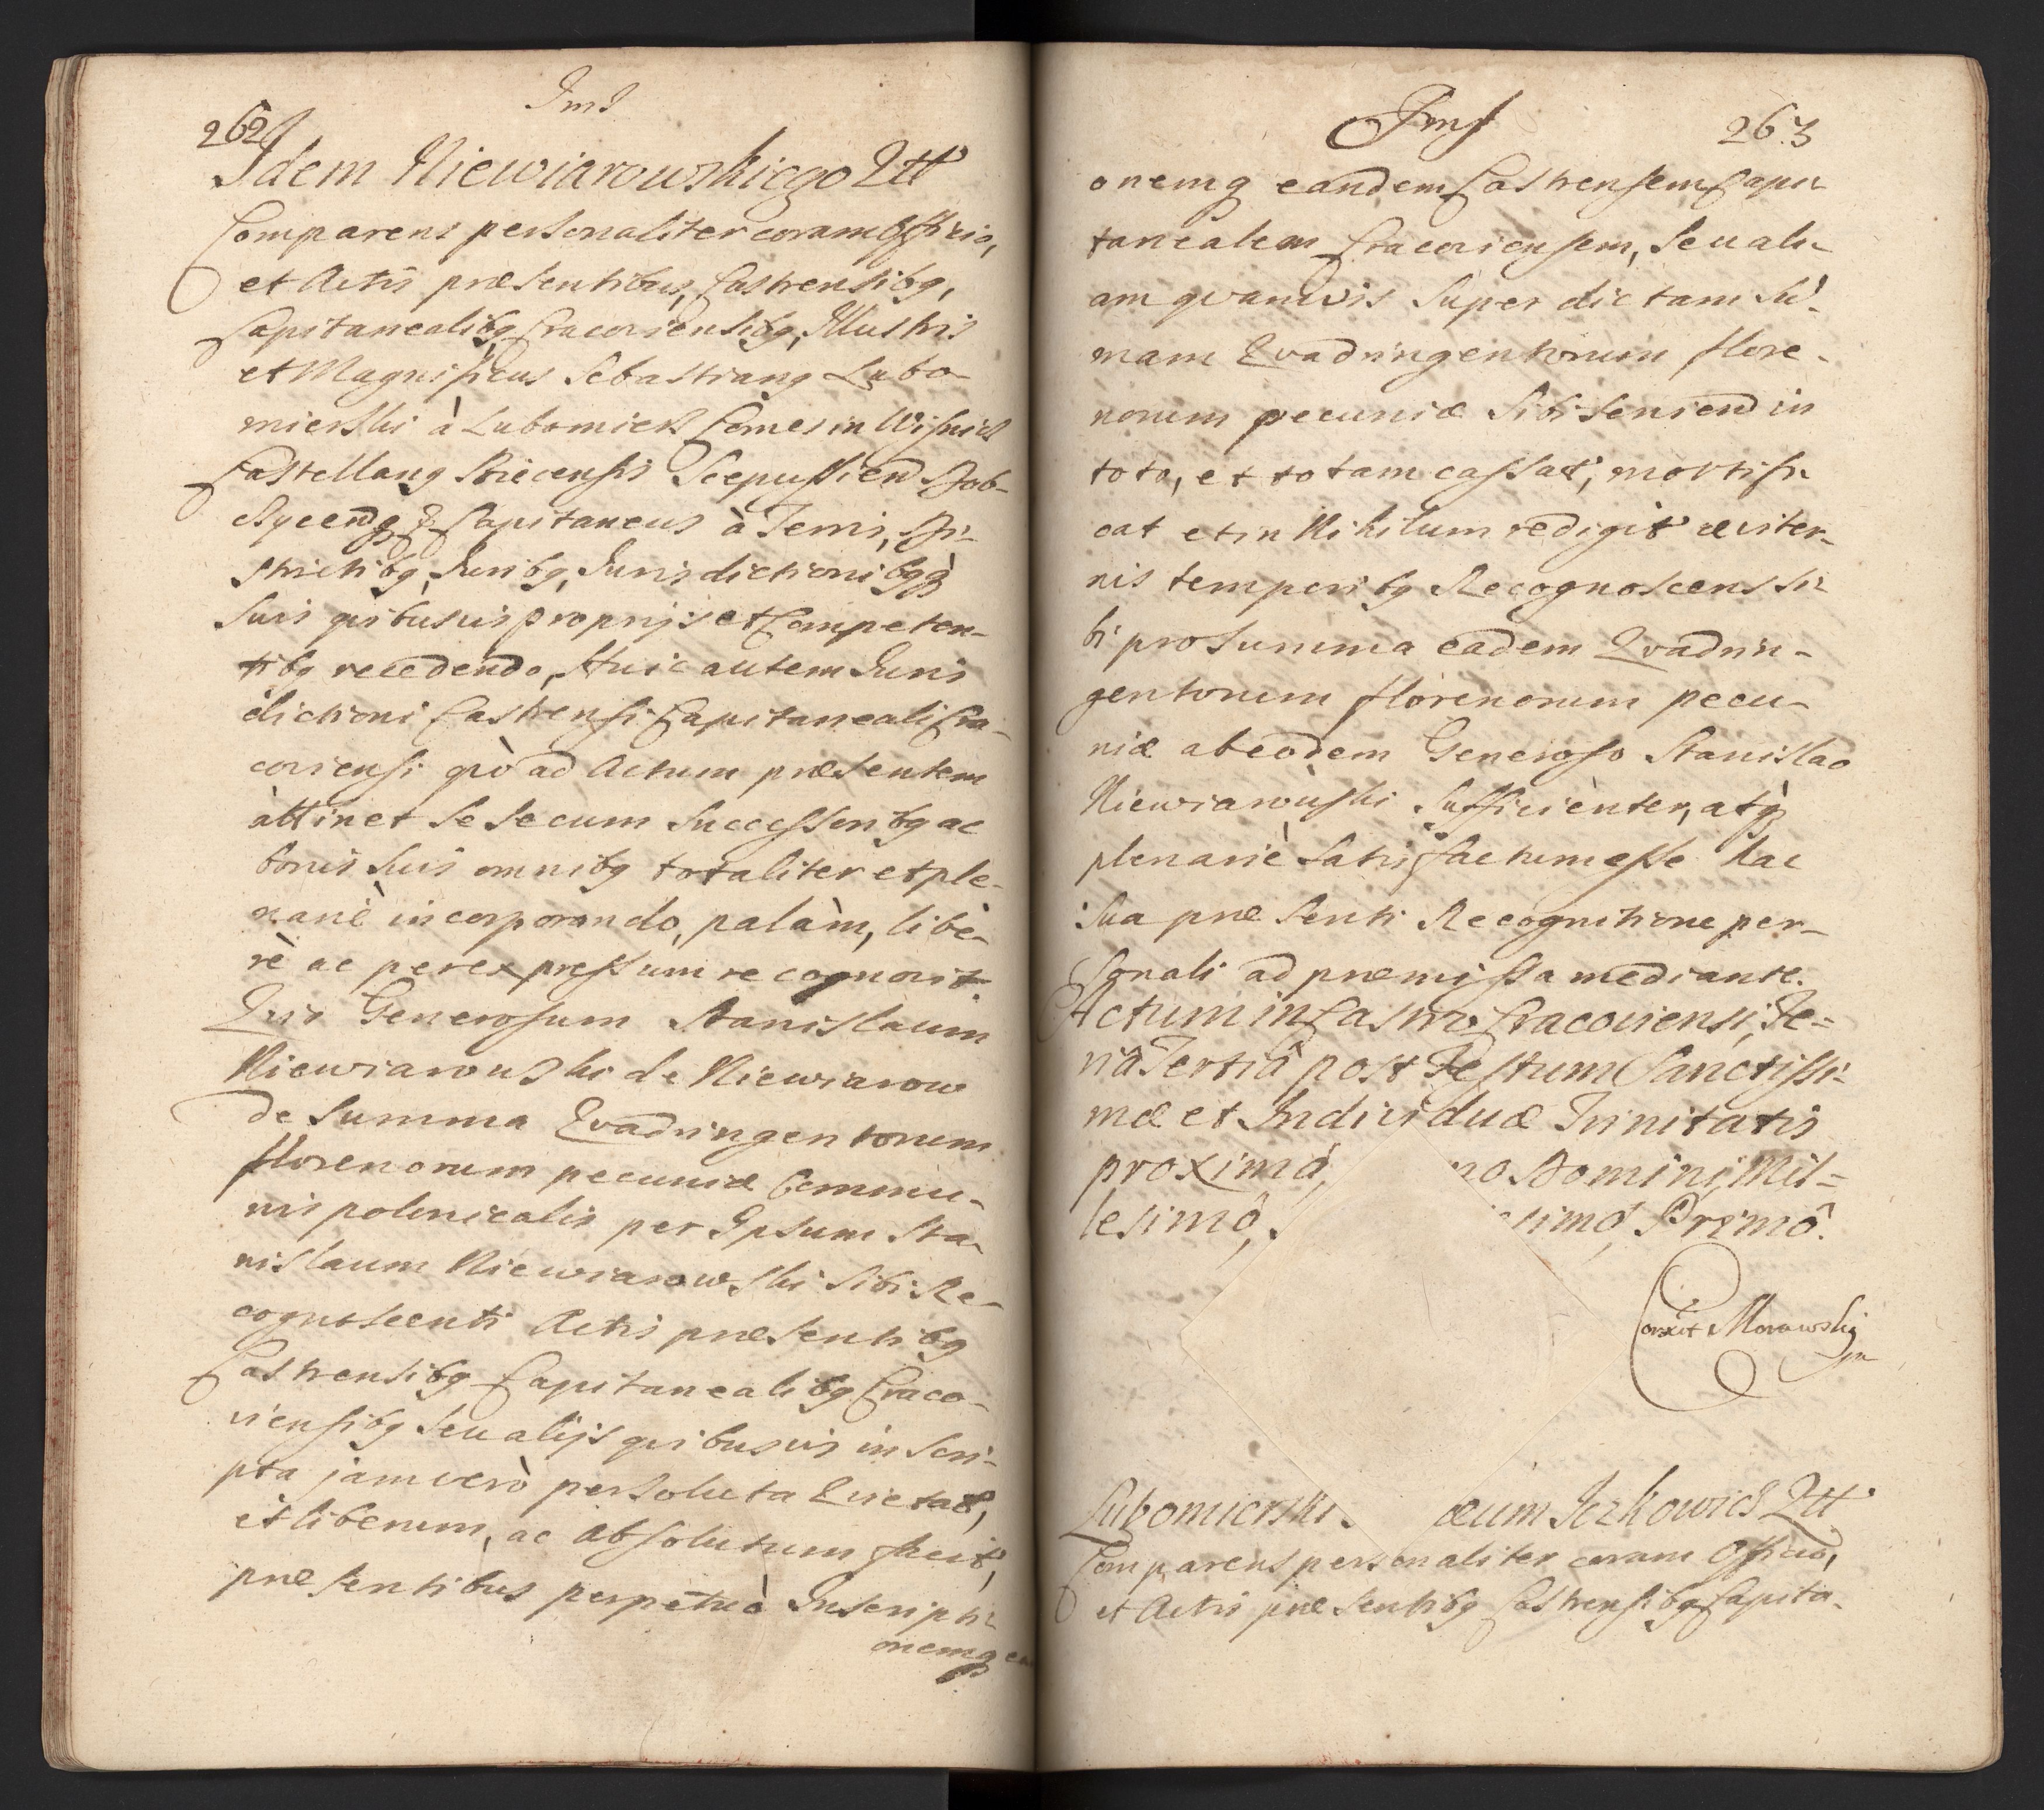 262
Jms
Idem Niewiarowskiego Qtt
Comparens personaliter coram Officio,
et Actis præsentibus, Castrensibq,
Capitanealibq Cracoviensibq, Illustris
et Magnificus Sebastianq Lubo-
mierski à Lubomierz Comes in Wisnicz
Castellanq Biecensis Scepusien Dob-
czycenq &
Capitaneus à Terris, Di-
strictibq, Juribq, Jurisdictionibqq
suis quibusuis proprijs et Competen-
tibq recedendo, Huic autem Juris
dictioni Castrensi Capitaneali Cra-
coviensi qvò ad Actum præsentem
àttinet se secum Successoribq ac
bonis suis omnibq totaliter et ple-
nariè incorporando, palàm, libè-
rè ac per expressum recognovit
Qvia Generosum Stanislaum
Niewiarouski de Niewiarow
de Summa Qvadringentorum
florenorum pecuniæ Commu-
nis polonicalis per Ipsum Sta-
nislaum Niewiarowski sibi Re-
cognoscenti Actis præsentibq
Castrensibq Capitanealibq Craco-
viensibq seu alijs quibusuis inscri-
pta jam verò persoluta Qvietat,
et liberum, ac absolutum facit,
præsentibus perpetuò Inscripti-
onemq ean
Jms
263
onemq eandem Castrensem Capi-
tanealem Cracoviensem, seu ali-
am qvamvis super dictam su-
mam Qvadringentorum flore-
norum pecuniæ sibi seruien in
toto, et totam cassat, mortifi-
cat et in Nihilum redigit æviter-
nis temporibq Recognoscens si-
bi pro summa eadem Qvadrin-
gentorum florenorum pecu-
niæ ab eodem Generoso Stanislao
Niewiarowski Sufficienter, atq
plenariè satisfactum esse hac
sua præsenti Recognitione per-
sonali ad præmissa mediante.
Actum in Castro Cracoviensi, Fe-
riâ Tertiâ post Festum Sanctissi-
mæ et Individuæ Trinitatis
proximâ, no Domini, Mil-
lesimô, simô, Primô.
Corexit Morawskj
mp
Lubomierski æum Jerkowicz Qtt
Comparens personaliter coram Officio,
et Actis præsentibq Castrensibq Capita-